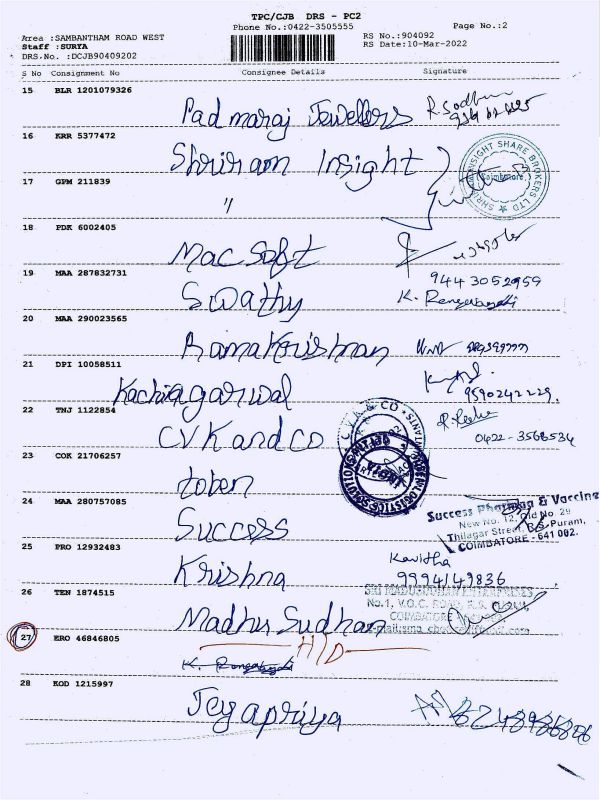 TPC/CJB DRS - PC2
Phone No.:0422-3505555 Page No.:2
Area :SAMBANTHAM ROAD WEST RS No.:904092
Staff :SURYA RS Date:10-Mar-2022
DRS.No. :DCJB90409202
S No Consignment No Consignee Details Signature
15 BLR 1201079326
Padmaraj Jewellers
16 KRR 5377472
Shriram Insight
INSIGHT SHARE BROKERS LTD
Coimbatore
17 GPM 211839
"
18 PDK 6002405
Mac Soft
19 MAA 287832731
Swathy
9443052959
20 MAA 290023565
Ramakrishnan
21 DPI 10058511
Kachiagarwal
9590242229
22 TNJ 1122854
CVK and CO
0422-3568534
C V K & CO
23 COK 21706257
toben
24 MAA 280757085
Success
Success Pharma & Vaccine
New No. 12, Old No. 29
Thilagar Street, R.S. Puram,
COIMBATORE - 641 002.
25 PRO 12932483
Krishna
Kavitha
9994149836
26 TEN 1874515
Madhu Sudhan
SRI MADUSUDHAN ENTERPRISES
No.1, V.O.C. ROAD, R.S.
COIMBATORE
27 ERO 46846805
H/D
28 KOD 1215997
Jeyapriya